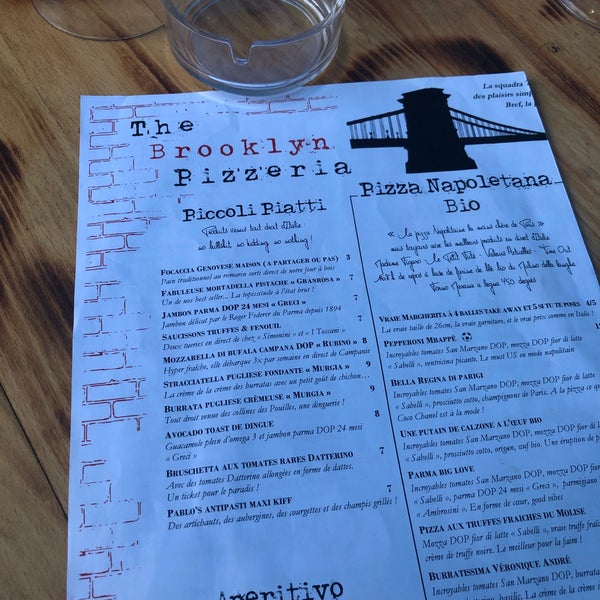 The
Brooklyn
Pizzeria
Piccoli Piatti
Produits venus tout droit d'Italie :
no bullshit, no kidding, no nothing !
FOCACCIA GENOVESE MAISON (A PARTAGER OU PAS) 3
Pain traditionnel au romarin sorti direct de notre four à bois
FABULEUSE MORTADELLA PISTACHE « GRANROSA » 7
Un de nos best seller... La topissitude à l'état brut !
JAMBON PARMA DOP 24 MESI « GRECI » 7
Jambon délicat par le Roger Federer du Parma depuis 1894
SAUCISSONS TRUFFES & FENOUIL 7
Deux tueries en direct de chez « Simonini » et « I Toscani »
MOZZARELLA DI BUFALA CAMPANA DOP « RUBINO » 8
Hyper fraîche, elle débarque 3x par semaine en direct de Campanie
STRACCIATELLA PUGLIESE FONDANTE « MURGIA » 9
La crème de la crème des burratas avec un petit goût de chichon...
BURRATA PUGLIESE CRÈMEUSE « MURGIA » 9
Tout droit venue des collines des Pouilles, une dinguerie !
AVOCADO TOAST DE DINGUE 8
Guacamole plein d'omega 3 et jambon parma DOP 24 mesi
« Greci »
BRUSCHETTA AUX TOMATES RARES DATTERINO 7
Avec des tomates Datterino allongées en forme de dattes.
Un ticket pour le paradis !
PABLO'S ANTIPASTI MAXI KIFF 7
Des artichauts, des aubergines, des courgettes et des champis grillés !
Aperitivo
La squadra
des plaisirs simp
Bref, la
Pizza Napoletana
Bio
VRAIE MARGHERITA À 4 BALLES TAKE AWAY ET 5 SI TU TE POSES 4/5
La vraie taille de 26cm, la vraie garniture, et le vrai prix comme en Italie !
PEPPERONI MBAPPÉ
Incroyables tomates San Marzano DOP, mozza DOP fior di latte
« Sabelli », ventricina picante. Le must US en mode napolitain
BELLA REGINA DI PARIGI
Incroyables tomates San Marzano DOP, mozza DOP fior di
« Sabelli », prosciutto cotto, champignons de Paris. A la pizza ce q
Coco Chanel est à la mode !
UNE PUTAIN DE CALZONE A L'ŒUF BIO
Incroyables tomates San Marzano DOP, mozza DOP fior
« Sabelli », prosciutto cotto, origan, œuf bio. Une éruption de p
PARMA BIG LOVE
Incroyables tomates San Marzano DOP, mozza DOP
« Sabelli », parma DOP 24 mesi « Greci », parmigiano
« Ambrosini ». En forme de cœur, good vibes
PIZZA AUX TRUFFES FRAICHES DU MOLISE
Mozza DOP fior di latte « Sabelli », vraies truffes
crème de truffe noire. Le meilleur pour la faim !
BURRATISSIMA VÉRONIQUE ANDRÉ
Incroyables tomates San Marzano DOP, mozza